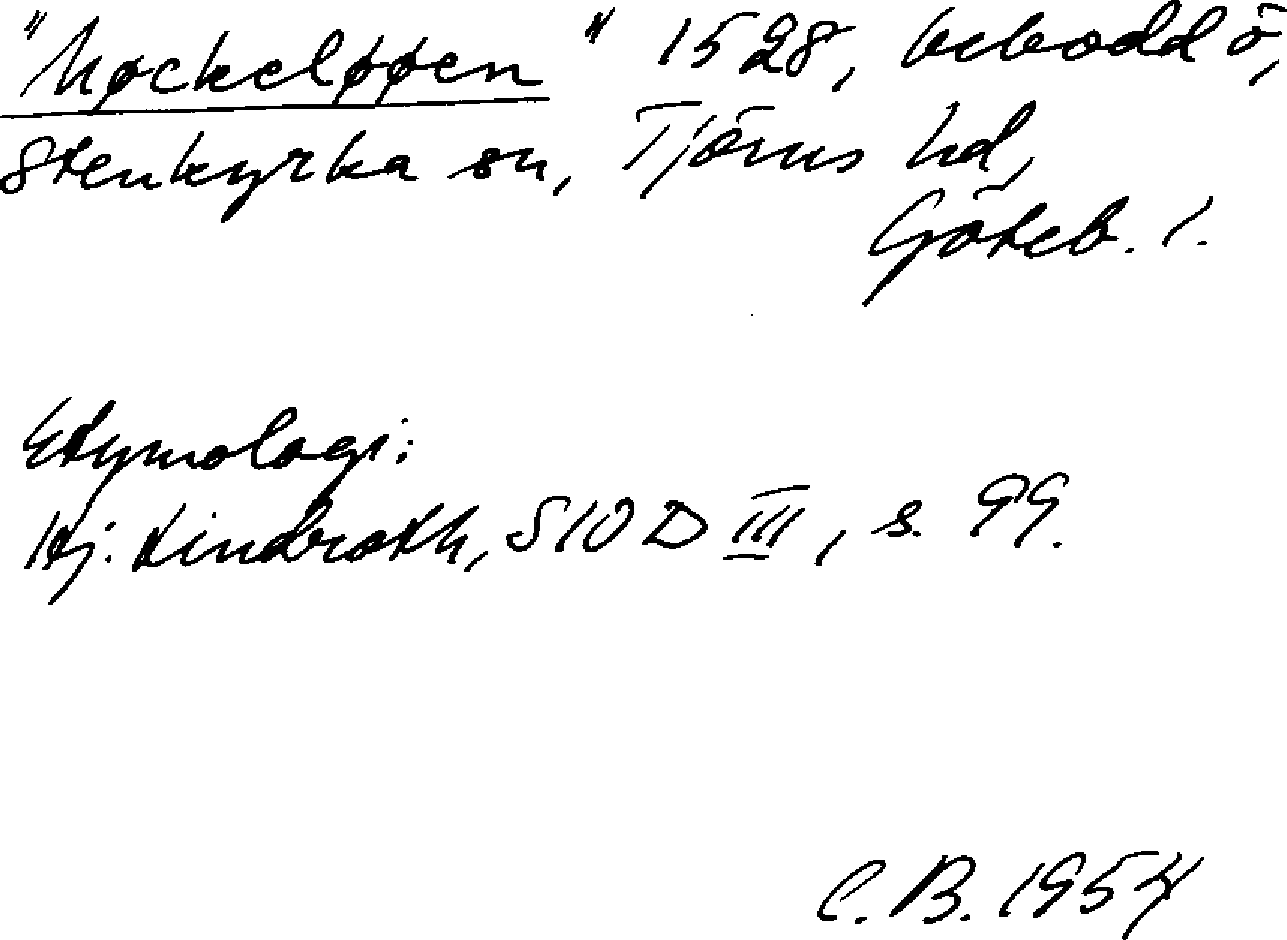 "Møckeløøen" 1528, bebodd ö,
Stenkyrka sn, Tjörns hd,
Göteb. l.
Etymologi:
Hj. Lindroth, SIOD III, s. 99.
C.B. 1954